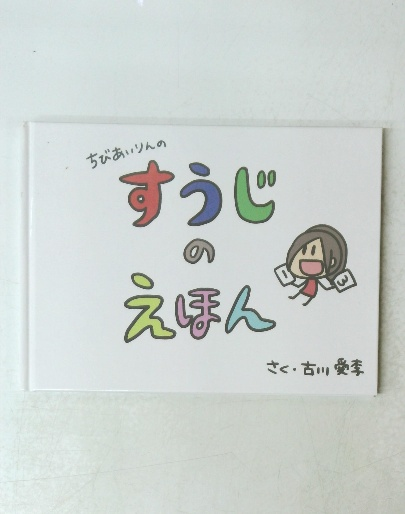 ちびあいりんの
すうじ
の
えほん
1 3
さく・古川 愛李